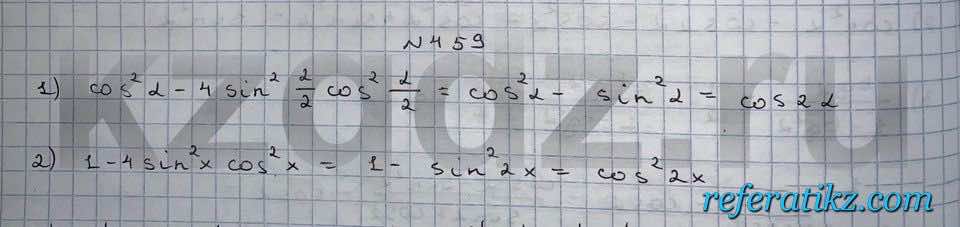 N459
1) cos²α - 4 sin² α/2 cos² α/2 = cos²α - sin²α = cos2α
2) 1 - 4 sin²x cos²x = 1 - sin²2x = cos²2x
kzgdz.ru
referatikz.com